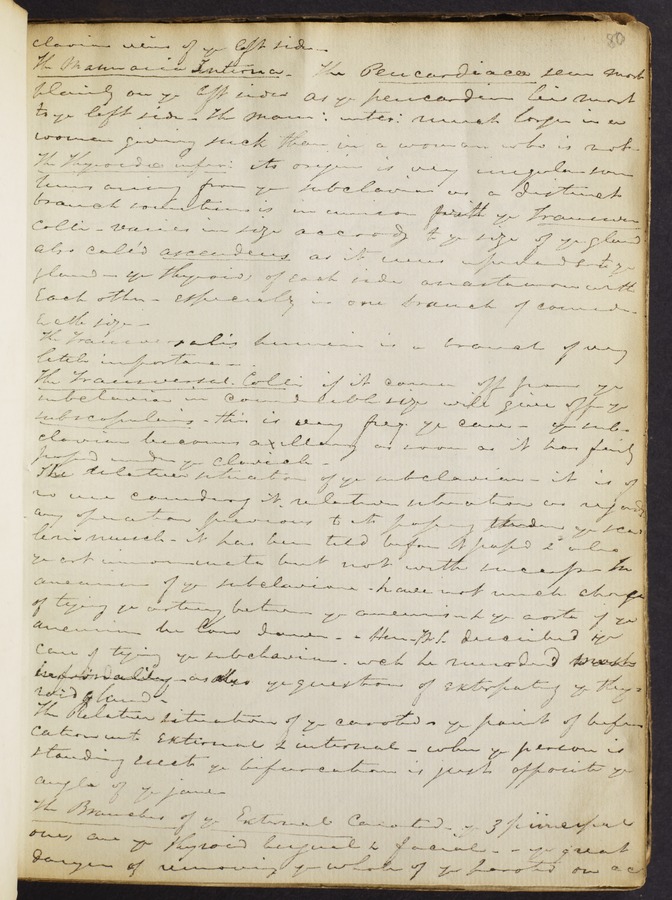 80
clavian vein of ye left side -
The Mammaria Interna - The Pericardiacea seen most
plainly on ye left side as ye pericardium lies most
to ye left side - The mam: inter: much larger in a
woman giving suck than in a woman who is not -
The Thyroidea infer: its origin is very irregular som
times arising from ye subclavian as a distinct
branch sometimes is in common with ye Transver
Colli - varies in size accordg to ye size of ye gland
also called ascendens as it runs upwards to ye
gland - ye thyroids of each side anastamose with
Each other - especially in one branch of consid-
erable size -
The Transversalis humeri is a branch of very
little importance -
The Transversal. Colli if it comes off from ye
subclavian in considerable size will give off ye
subscapularis - this is very freq. ye case - ye sub-
clavian becomes axillary as soon as it has fairly
passed under ye clavicle -
The relative situation of ye subclavian - it is of
no use considerg it relative situation as regards
any operation previous to its passing under ye scal
leni musch - it has been tied before it passed
ye art innominata but not with success In
aneurism of ye subclavian have not much
of tying ye artery between ye aneurism & ye aorta if ye
aneurism be low down - described ye
case of tying ye subclavian wch he
as also ye question of extirpating ye thy-
roid gland -
The Relative situation of ye carotid - ye point of bifur
cation into External & internal - when ye person is
standing erect ye bifurcation is just opposite ye
angle of ye jaw
The Branches of ye External Carotid - ye 3 principal
ones are ye thyroid lingual & facial - ye great
danger of removing ye whole of ye parotid on ac